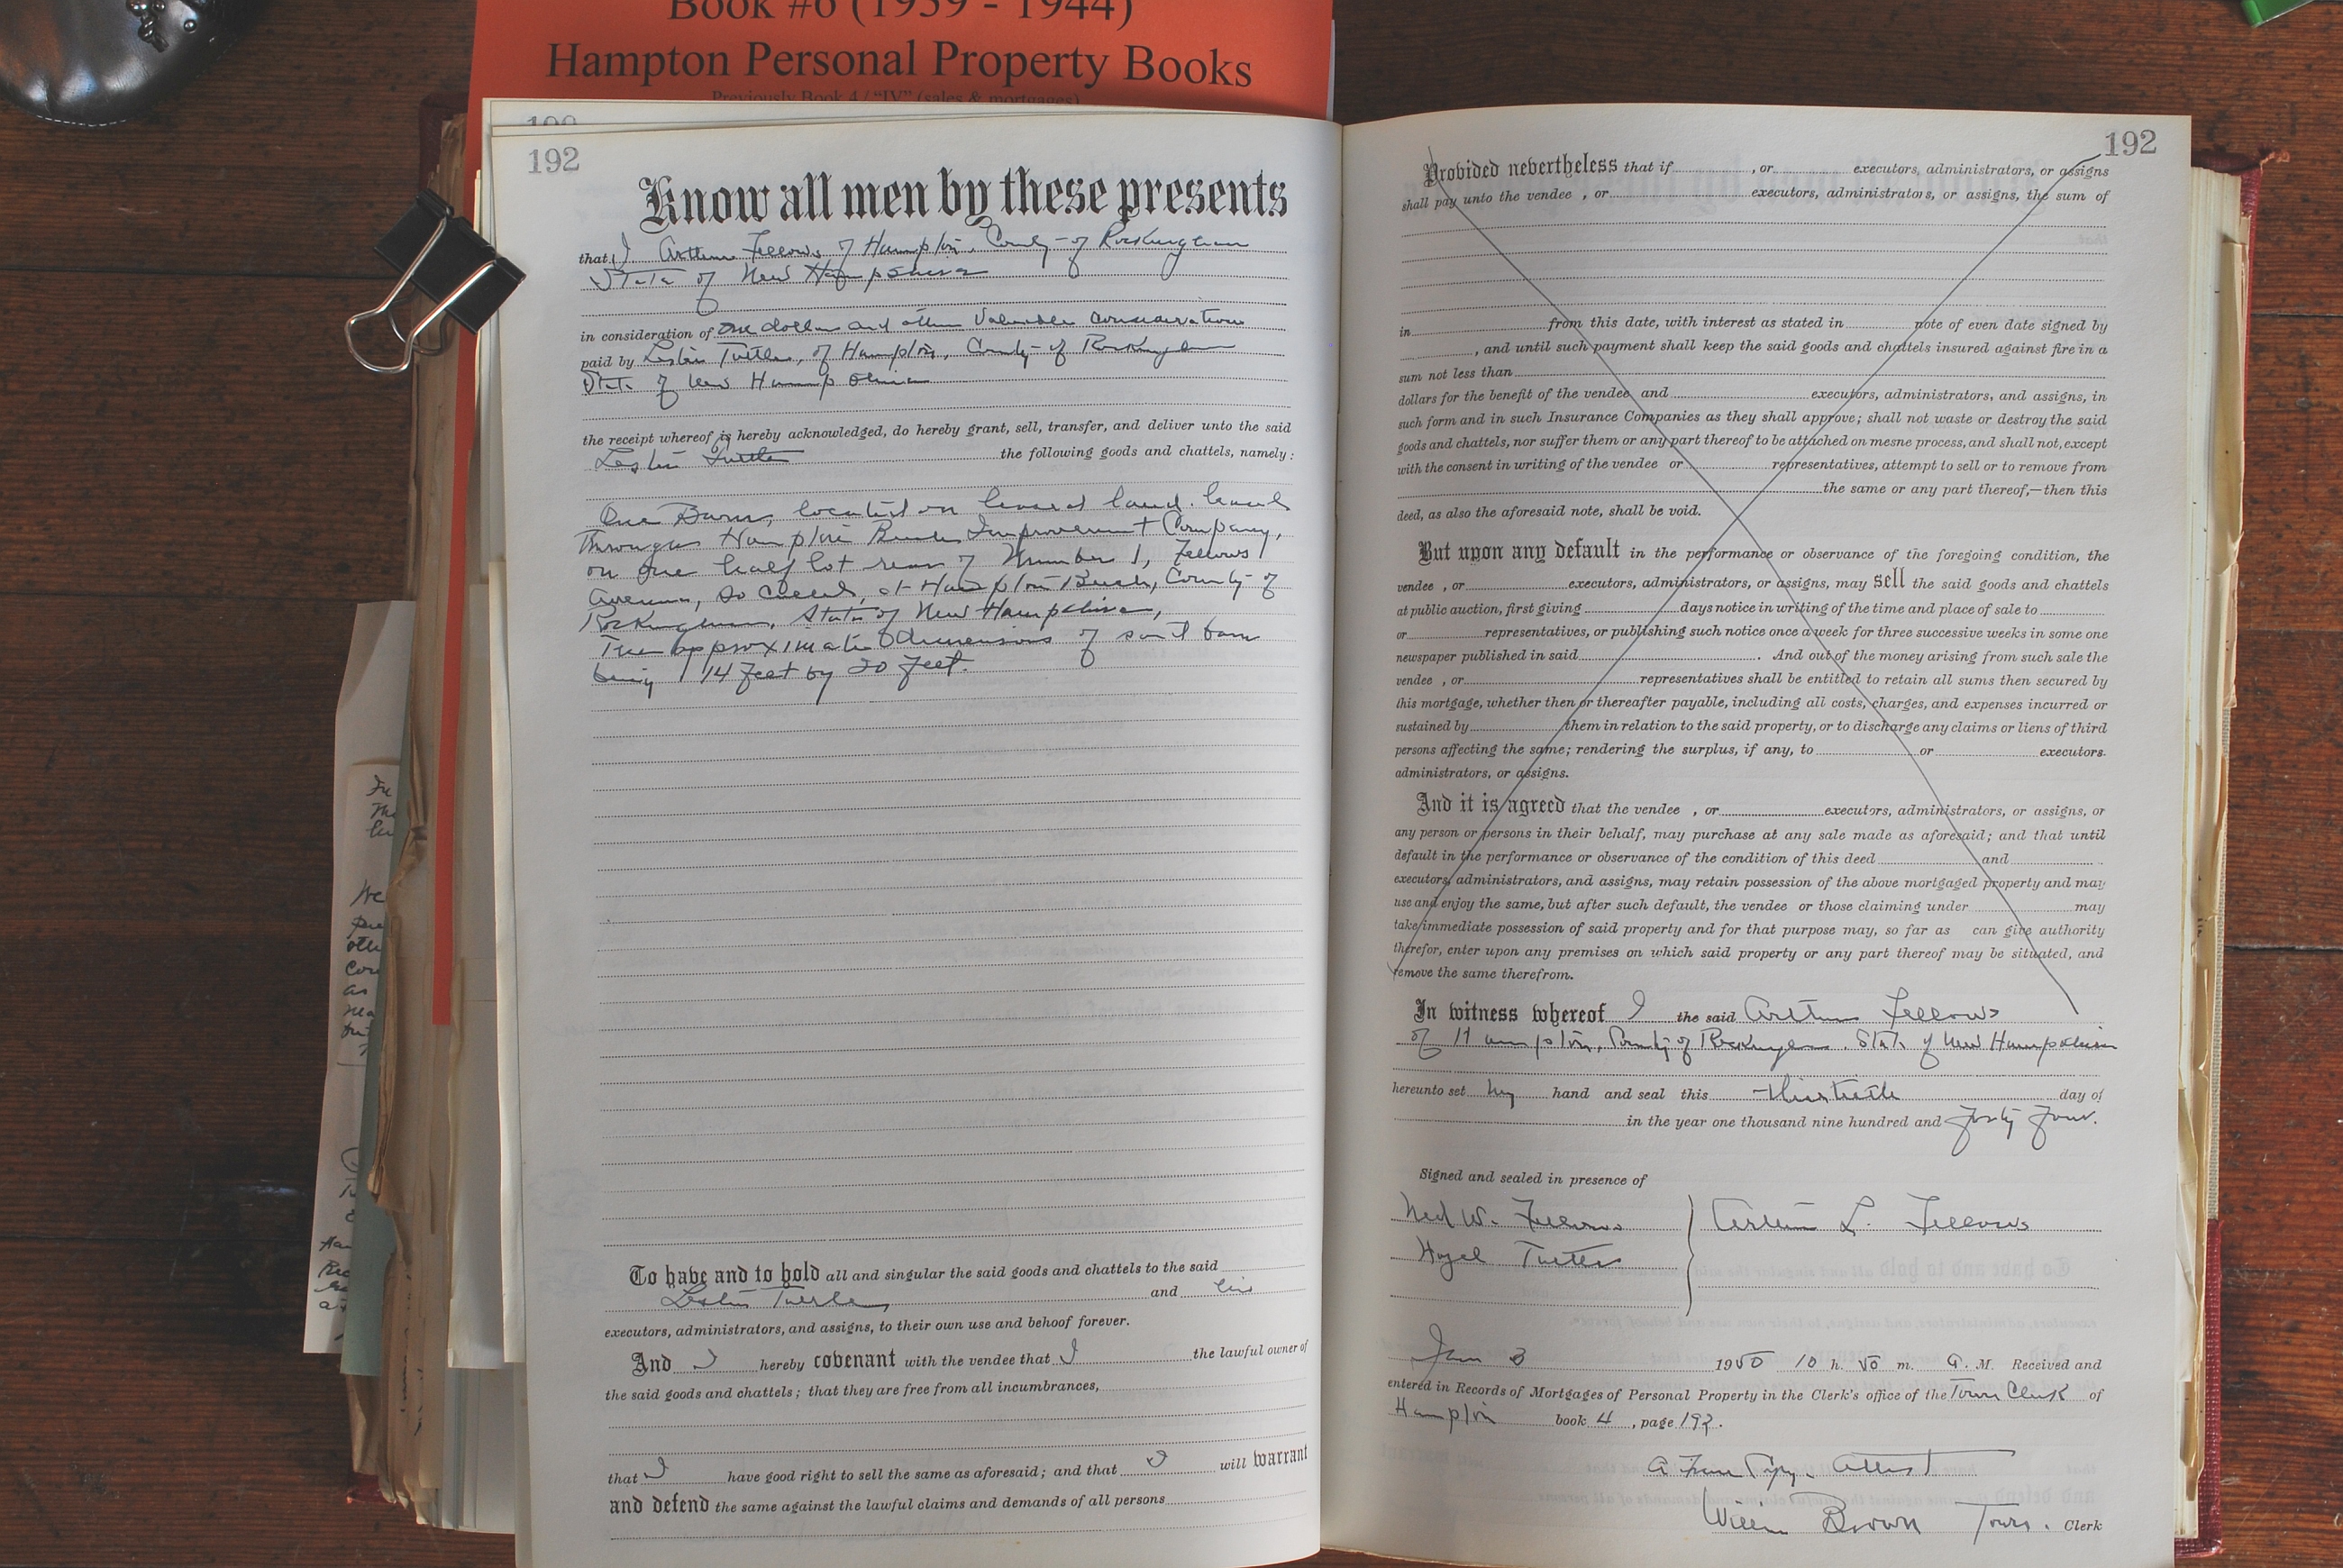 Book #6 (1939 - 1944)
Hampton Personal Property Books
Previously Book 4 / "IV" (sales & mortgages)
190
192
Know all men by these presents
that I Arthur Fellows of Hampton. County of Rockingham
State of New Hampshire
in consideration of one dollar and other Valuable consideration
paid by Leslie Tuttle, of Hampton, County of Rockingham
State of New Hampshire
the receipt whereof is hereby acknowledged, do hereby grant, sell, transfer, and deliver unto the said
Leslie Tuttle the following goods and chattels, namely:
One Barn, located on leased land. leased
through Hampton Beach Improvement Company,
on one half lot rear of Number 1, Fellows
Avenue, so called, at Hampton Beach, County of
Rockingham, State of New Hampshire,
The approximate dimensions of said barn
being 14 feet by 20 feet.
To have and to hold all and singular the said goods and chattels to the said
Leslie Tuttle and his
executors, administrators, and assigns, to their own use and behoof forever.
And I hereby covenant with the vendee that I the lawful owner of
the said goods and chattels; that they are free from all incumbrances,
that I have good right to sell the same as aforesaid; and that I will warrant
and defend the same against the lawful claims and demands of all persons
192
Provided nevertheless that if , or executors, administrators, or assigns
shall pay unto the vendee , or executors, administrators, or assigns, the sum of
in from this date, with interest as stated in note of even date signed by
, and until such payment shall keep the said goods and chattels insured against fire in a
sum not less than
dollars for the benefit of the vendee and executors, administrators, and assigns, in
such form and in such Insurance Companies as they shall approve; shall not waste or destroy the said
goods and chattels, nor suffer them or any part thereof to be attached on mesne process, and shall not, except
with the consent in writing of the vendee or representatives, attempt to sell or to remove from
the same or any part thereof,—then this
deed, as also the aforesaid note, shall be void.
But upon any default in the performance or observance of the foregoing condition, the
vendee , or executors, administrators, or assigns, may sell the said goods and chattels
at public auction, first giving days notice in writing of the time and place of sale to
or representatives, or publishing such notice once a week for three successive weeks in some one
newspaper published in said . And out of the money arising from such sale the
vendee , or representatives shall be entitled to retain all sums then secured by
this mortgage, whether then or thereafter payable, including all costs, charges, and expenses incurred or
sustained by them in relation to the said property, or to discharge any claims or liens of third
persons affecting the same; rendering the surplus, if any, to or executors.
administrators, or assigns.
And it is agreed that the vendee , or executors, administrators, or assigns, or
any person or persons in their behalf, may purchase at any sale made as aforesaid; and that until
default in the performance or observance of the condition of this deed and
executors, administrators, and assigns, may retain possession of the above mortgaged property and may
use and enjoy the same, but after such default, the vendee or those claiming under may
take immediate possession of said property and for that purpose may, so far as can give authority
therefor, enter upon any premises on which said property or any part thereof may be situated, and
remove the same therefrom.
In witness whereof I the said Arthur Fellows
of Hampton, County of Rockingham. State of New Hampshire
hereunto set my hand and seal this thirtieth day of
in the year one thousand nine hundred and forty four.
Signed and sealed in presence of
Ned W. Fellows
Arthur L. Fellows
Hazel Tuttle
Jan 3 1950 10 h. 50 m. A. M. Received and
entered in Records of Mortgages of Personal Property in the Clerk's office of the Town Clerk of
Hampton book 4 , page 192.
A True Copy. Attest
William Brown Town. Clerk